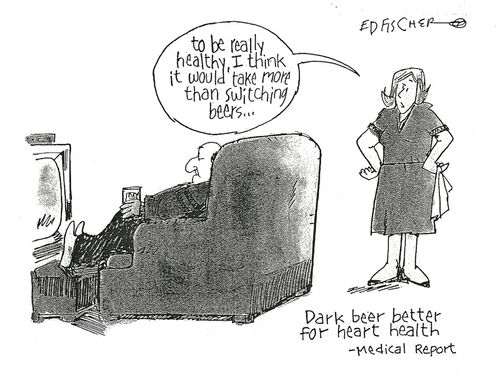 ED FISCHER
to be really
healthy, I think
it would take more
than switching
beers...
Dark beer better
for heart health
-Medical Report